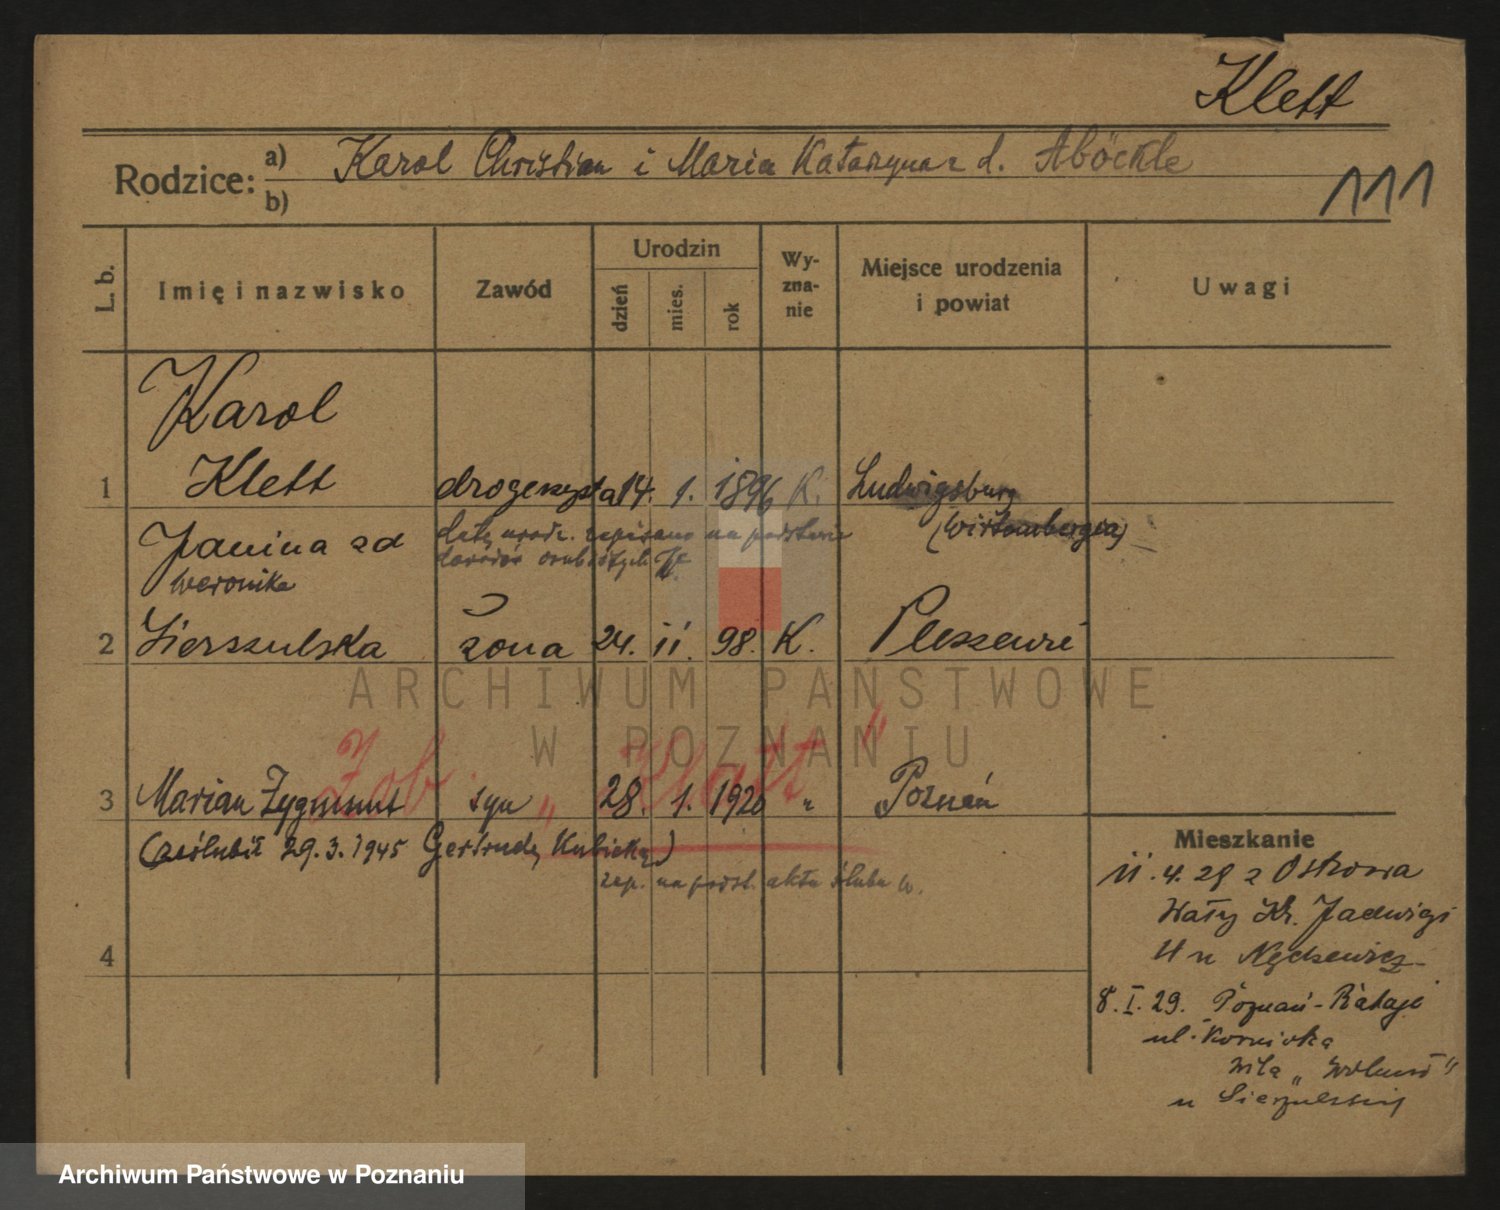 Klett
Rodzice: a) Karol Christian i Maria Katarzyna z d. Aböckle
b)
111
L. b.
Imię i nazwisko
Zawód
Urodzin
dzień
mies.
rok
Wy-
zna-
nie
Miejsce urodzenia
i powiat
Uwagi
Karol
1 Klett drogerzysta 14. 1. 1896 K. Ludwigsburg
(Wirtembergia)
datę urodz. zapisano na podstawie
dowodów osobistych
Janina zd
Weronika
2 Sierszulska żona 24. 11. 98. K. Pleszewie
Zob. "Klatt"
3 Marian Zygmunt syn " 28. 1. 1920 " Poznań
(zaślubił 29.3.1945 Gertrudę Kubicką)
zap. na podst. aktu ślubu
4
Mieszkanie
11.4.28 z Ostrowa
Wały Kr. Jadwigi
8.I.29. Poznań-Rataje
ul. Kornicka
willa "
u Sierszulskiej
ARCHIWUM PAŃSTWOWE
W POZNANIU
Archiwum Państwowe w Poznaniu